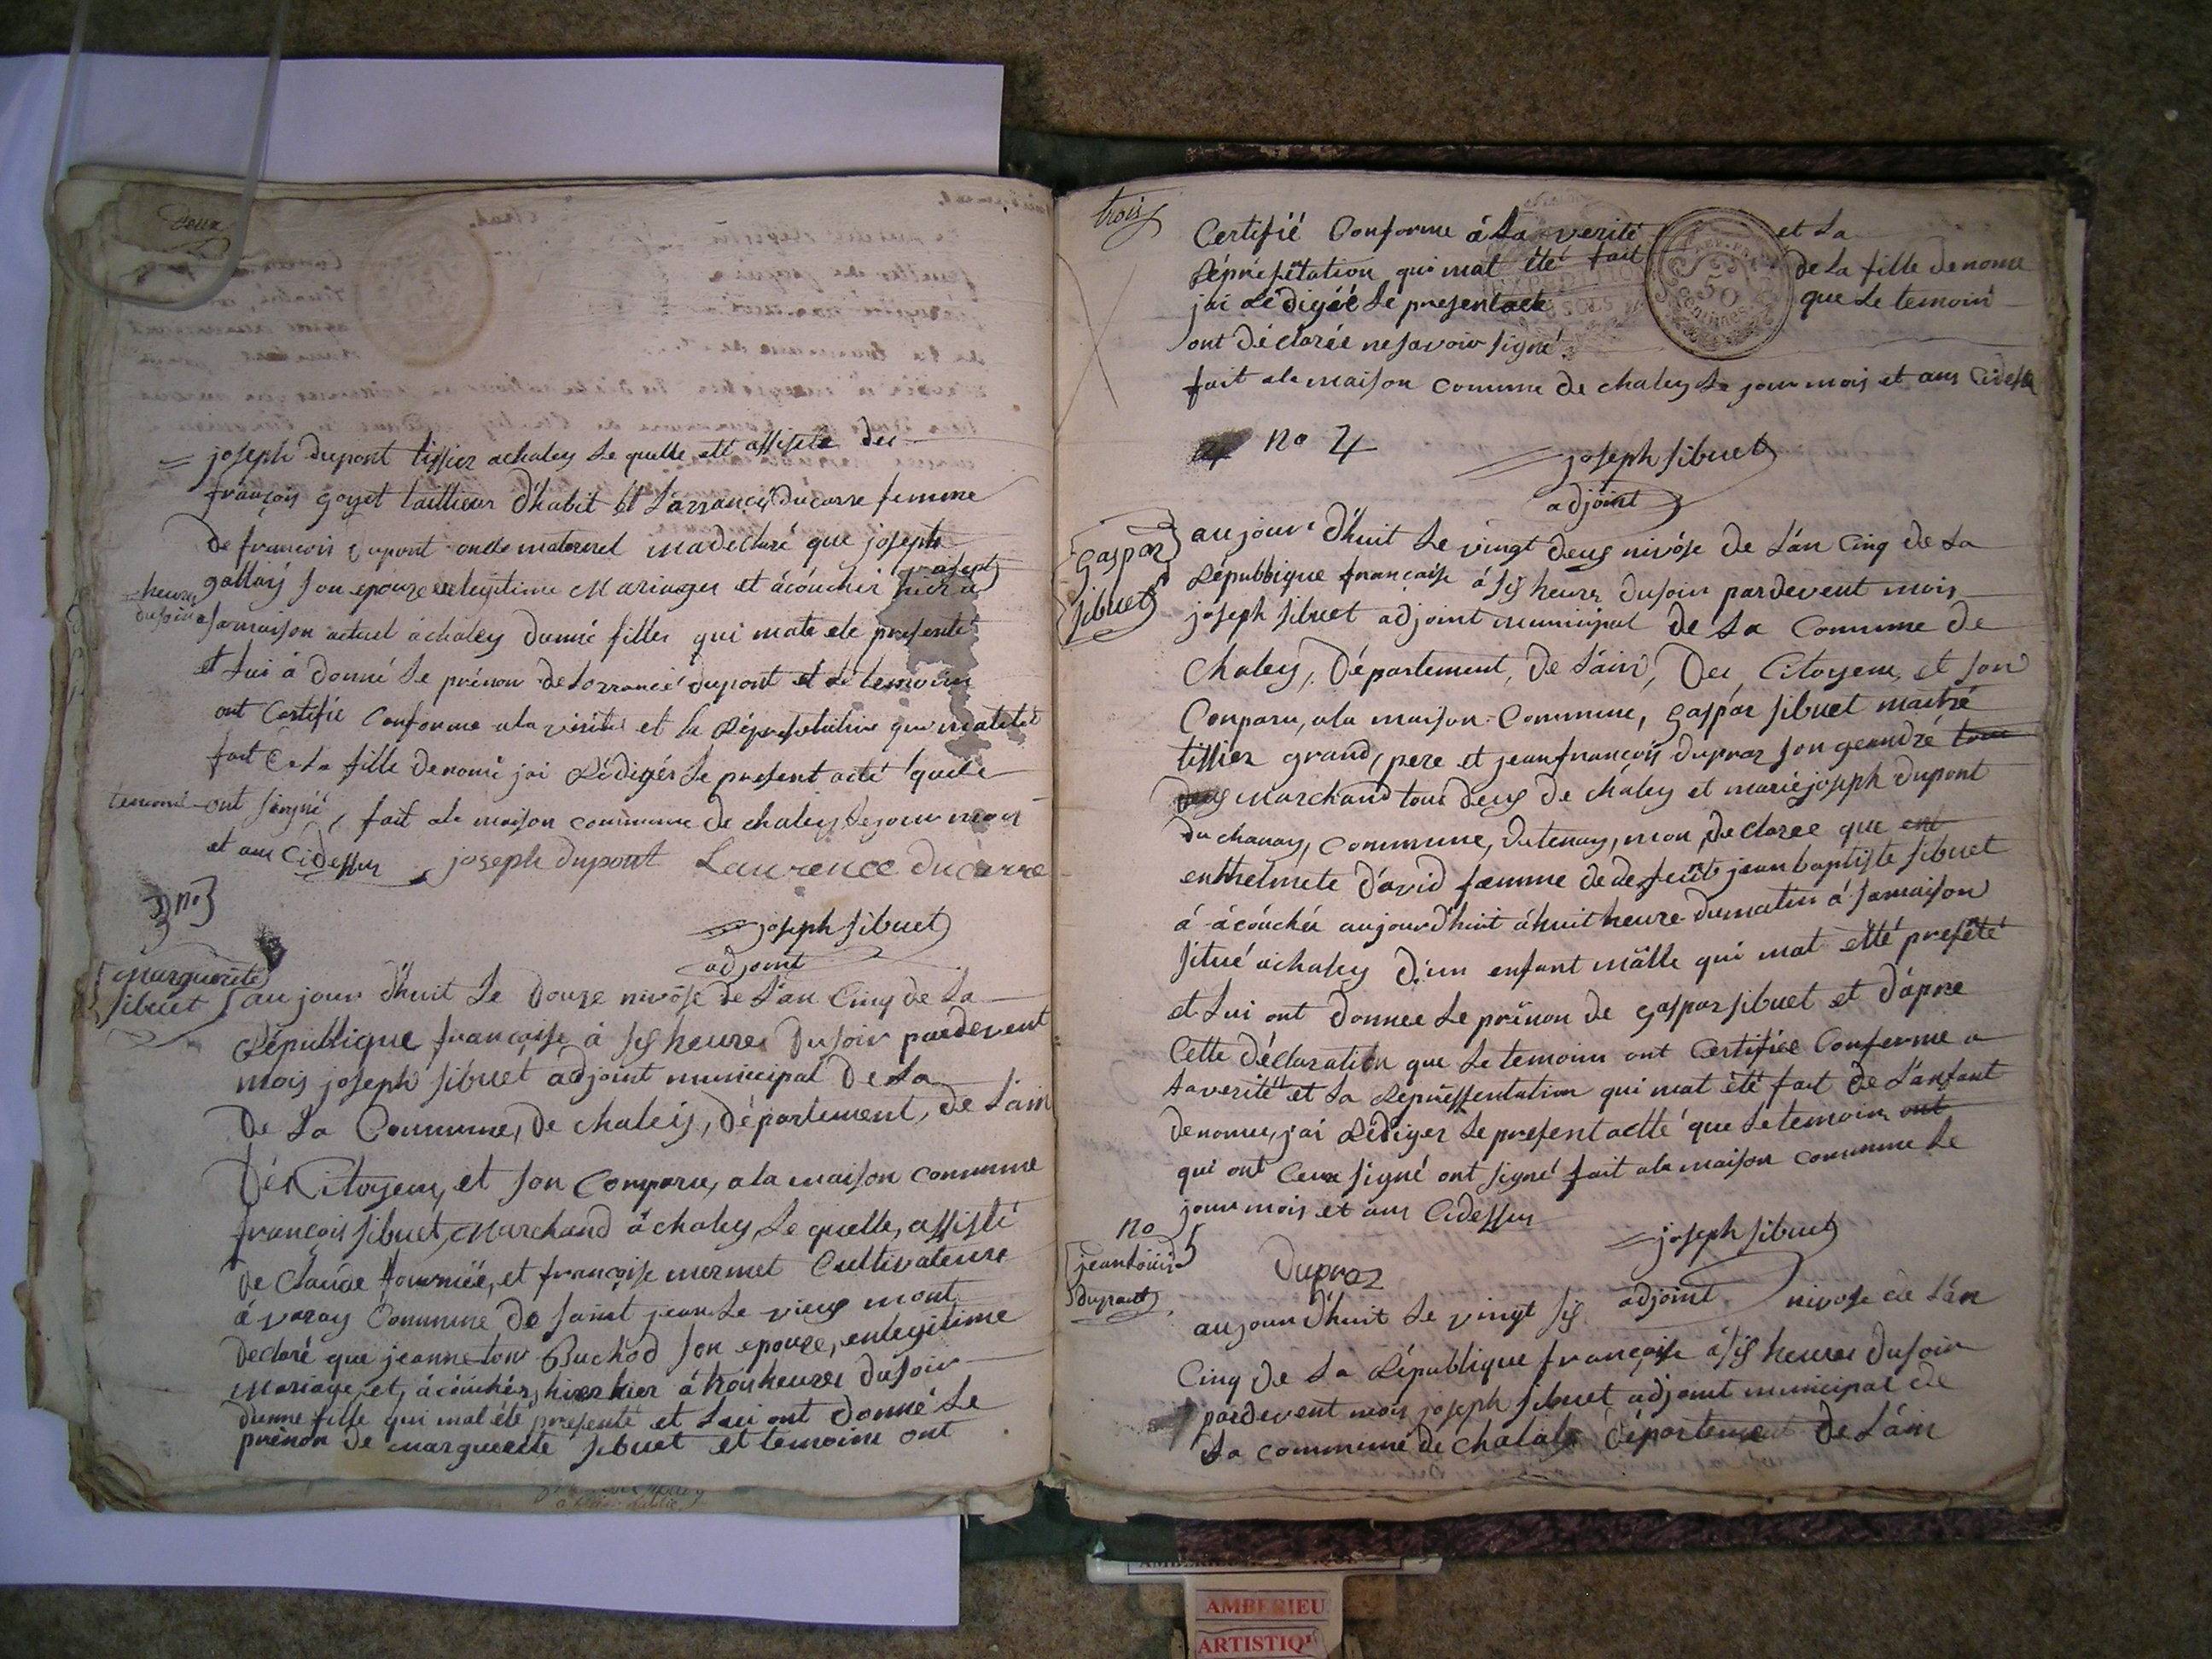 deux
joseph dupont tissier achaley le quelle ett assisté du
françois goyet taillieur d'habit et Larrance ducarre femme
de francois dupont oncle maternel madeclaré que joseph
gallay son epouze en legitime Mariages et àcoucher hier a sept
heures dusoir a samaison actuel à chaley dunne filles qui mate ete presenté
et Lui à donné le prénon de Lorrance dupont et le temoin
ont Certifie Conforme ala verité et la Répresetation qui mateté
fait de la fille denomé jai Rédigér le present acte que le
temoins ont signé, fait ala maison commune de chaley le jour mois
et ans Cidessus joseph dupont Laurence ducarre
no 3
joseph sibuet
adjoint
Marguerite
sibuet
aujour d'huit Le Douze nivôse de L'an Cinq de La
République françaisse à sis heures Dusoir pardevent
mois joseph sibuet adjoint municipal De La
De La Commune, De chaleÿ, département, de L'ain
Des Citoyens, et son Comparu, a la maison commune
françois sibuet, Marchand à chaley, Le quelle, assisté
de Claude fournier, et françoise mermet Cultivateurs
à varay Commune De saint jean le vieus mont
Declaré que jeanne Buchod son epouze, en legitime
Mariage, et, àcouchér, hier à trois heures Dusoir
Dunne fille qui mat été presenté et Lui ont Donné Le
prénon de marguerite sibuet et temoins ont
trois
Certifié Conforme à La verité et La
Réprésétation qui mat été fait de La fille denomé
jai Rédigée Le present acte que Le temoin
ont déclarée ne savoir signé
fait ala maison comune De chaley Le jour mois et ans Cidessus
50
no 4
joseph sibuet
adjoint
Gaspar
sibuet
aujour d'huit Le vingt deus nivôse de L'an Cinq de La
République française à sis heures dusoir pardevent mois
joseph sibuet adjoint municipal De La Comune De
Chaley, Département, De L'ain, Des Citoyens, et son
Conparu, ala maison-Commune, gaspar sibuet maitre
tissier grand, pere et jean françois dupraz son geandre tous
deus Marchand tous deus De chaley et marie joseph dupont
Du chanay, Commune, Dutenay, mon, declaree que ent
enthelmete D'avid famme de defeut jean baptiste sibuet
à àcouchée aujourd'huit à huit heure dumatin à samaison
situé achaley d'un enfant mâlle qui mat etté presêté
et Lui ont donnee Le prénon de gaspar sibuet et d'apre
Cette déclaration que Le temoins ont Certifiée Conforme a
La verité et La Represséntation qui mat été fait de L'anfant
denomé, jai Rédiger Le present actte que Le temoin ont
qui ont Ceux signé ont signé fait ala maison commune Le
jour mois et ans Cidessus
joseph sibuet
no
jean Louis
dupraz
Dupraz
adjoint
aujourd'huit Le vingt sis nivose de L'an
Cinq De La République françoise à sis heures dusoir
pardevent mois joseph sibuet adjoint municipal de
La commune de chalais département de L'ain
AMBERIEU
ARTISTIQ